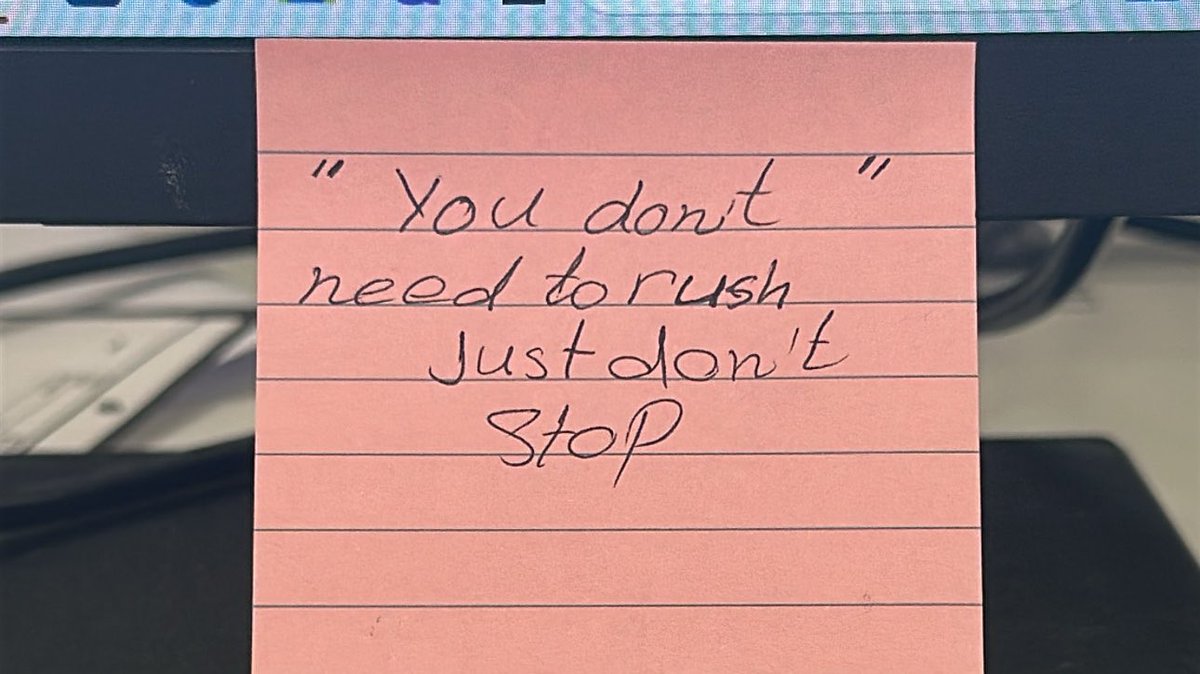 "You don't"
need to rush
Just don't
Stop